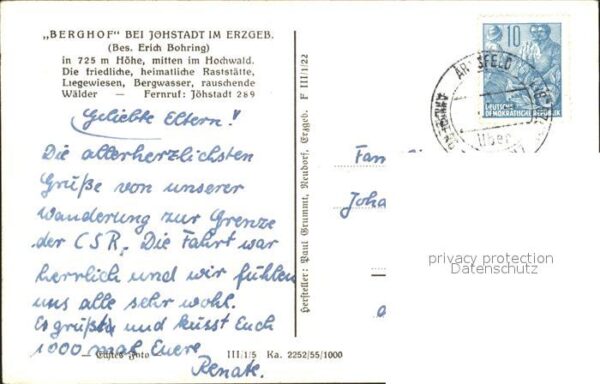 „BERGHOF" BEI JÖHSTADT IM ERZGEB.
(Bes. Erich Bohring)
in 725 m Höhe, mitten im Hochwald.
Die friedliche, heimatliche Raststätte,
Liegewiesen, Bergwasser, rauschende
Wälder — Fernruf: Jöhstadt 289
Geliebte Eltern!
Die allerherzlichsten
Grüße von unserer
Wanderung zur Grenze
der CSR. Die Fahrt war
herrlich und wir fühlen
uns alle sehr wohl.
Es grüßt und küsst Euch
1000 mal Euere
Renate.
— Echtes Foto III/1/5 Ka. 2252/55/1000
Hersteller: Paul Grummt, Neudorf, Erzgeb. F III/1/22
10
DEUTSCHE
DEMOKRATISCHE REPUBLIK
ARNSFELD
über
Fam
Joha
privacy protection
Datenschutz